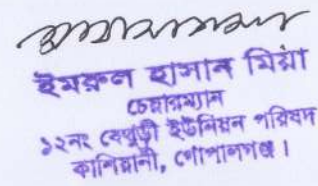 ইমরুল হাসান মিয়া
চেয়ারম্যান
১২নং বেথুড়ী ইউনিয়ন পরিষদ
কাশিয়ানী, গোপালগঞ্জ।